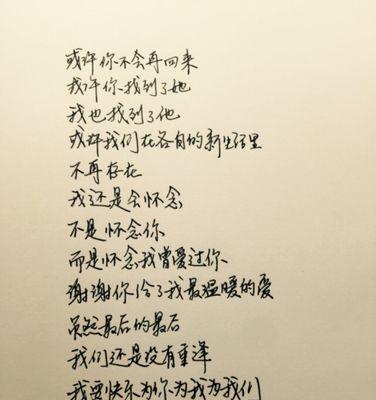 或许你不会再回来
或许你找到了她
我也找到了他
或许我们在各自的新生活里
不再存在
我还是会怀念
不是怀念你
而是怀念我曾爱过你
谢谢你给了我最温暖的爱
虽然最后的最后
我们还是没有重逢
我要快乐为你为我为我们